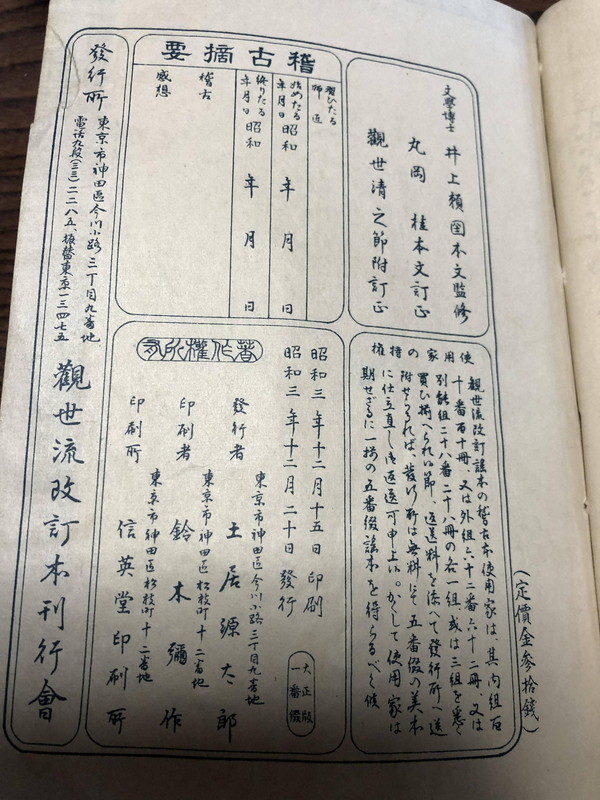 文學博士 井上頼圀本文監修
丸岡 桂本文訂正
觀世清之節附訂正
稽古摘要
習ひたる
師匠
始めたる
年月日 昭和 年 月 日
終りたる
年月日 昭和 年 月 日
稽古
感想
使用家の
權
觀世流改訂謠本の稽古本使用家は、其内組百
十番百十冊、又は外組六十二番六十二冊、又は
別能組二十八番二十八冊の各一組、或は三組を悉く
買ひ揃へられし節、返送料を添へて發行所へ送
附せらるれば、發行所は無料にて五番綴の美本
に仕立直し御返送可申上候。かくして使用家は
期せざるに一揃の五番綴謠本を得らるべく候
(定價金參拾錢)
著作權所有
昭和三年十二月十五日印刷
昭和三年十二月二十日發行
大正版
一番綴
東京市神田區今川小路三丁目九番地
發行者 土居源太郎
東京市神田區松枝町十二番地
印刷者 鈴木彌作
東京市神田區松枝町十二番地
印刷所 信英堂印刷所
發行所 東京市神田區今川小路三丁目九番地
電話九段(33)二二八五、振替東京一三四七五
觀世流改訂本刊行會